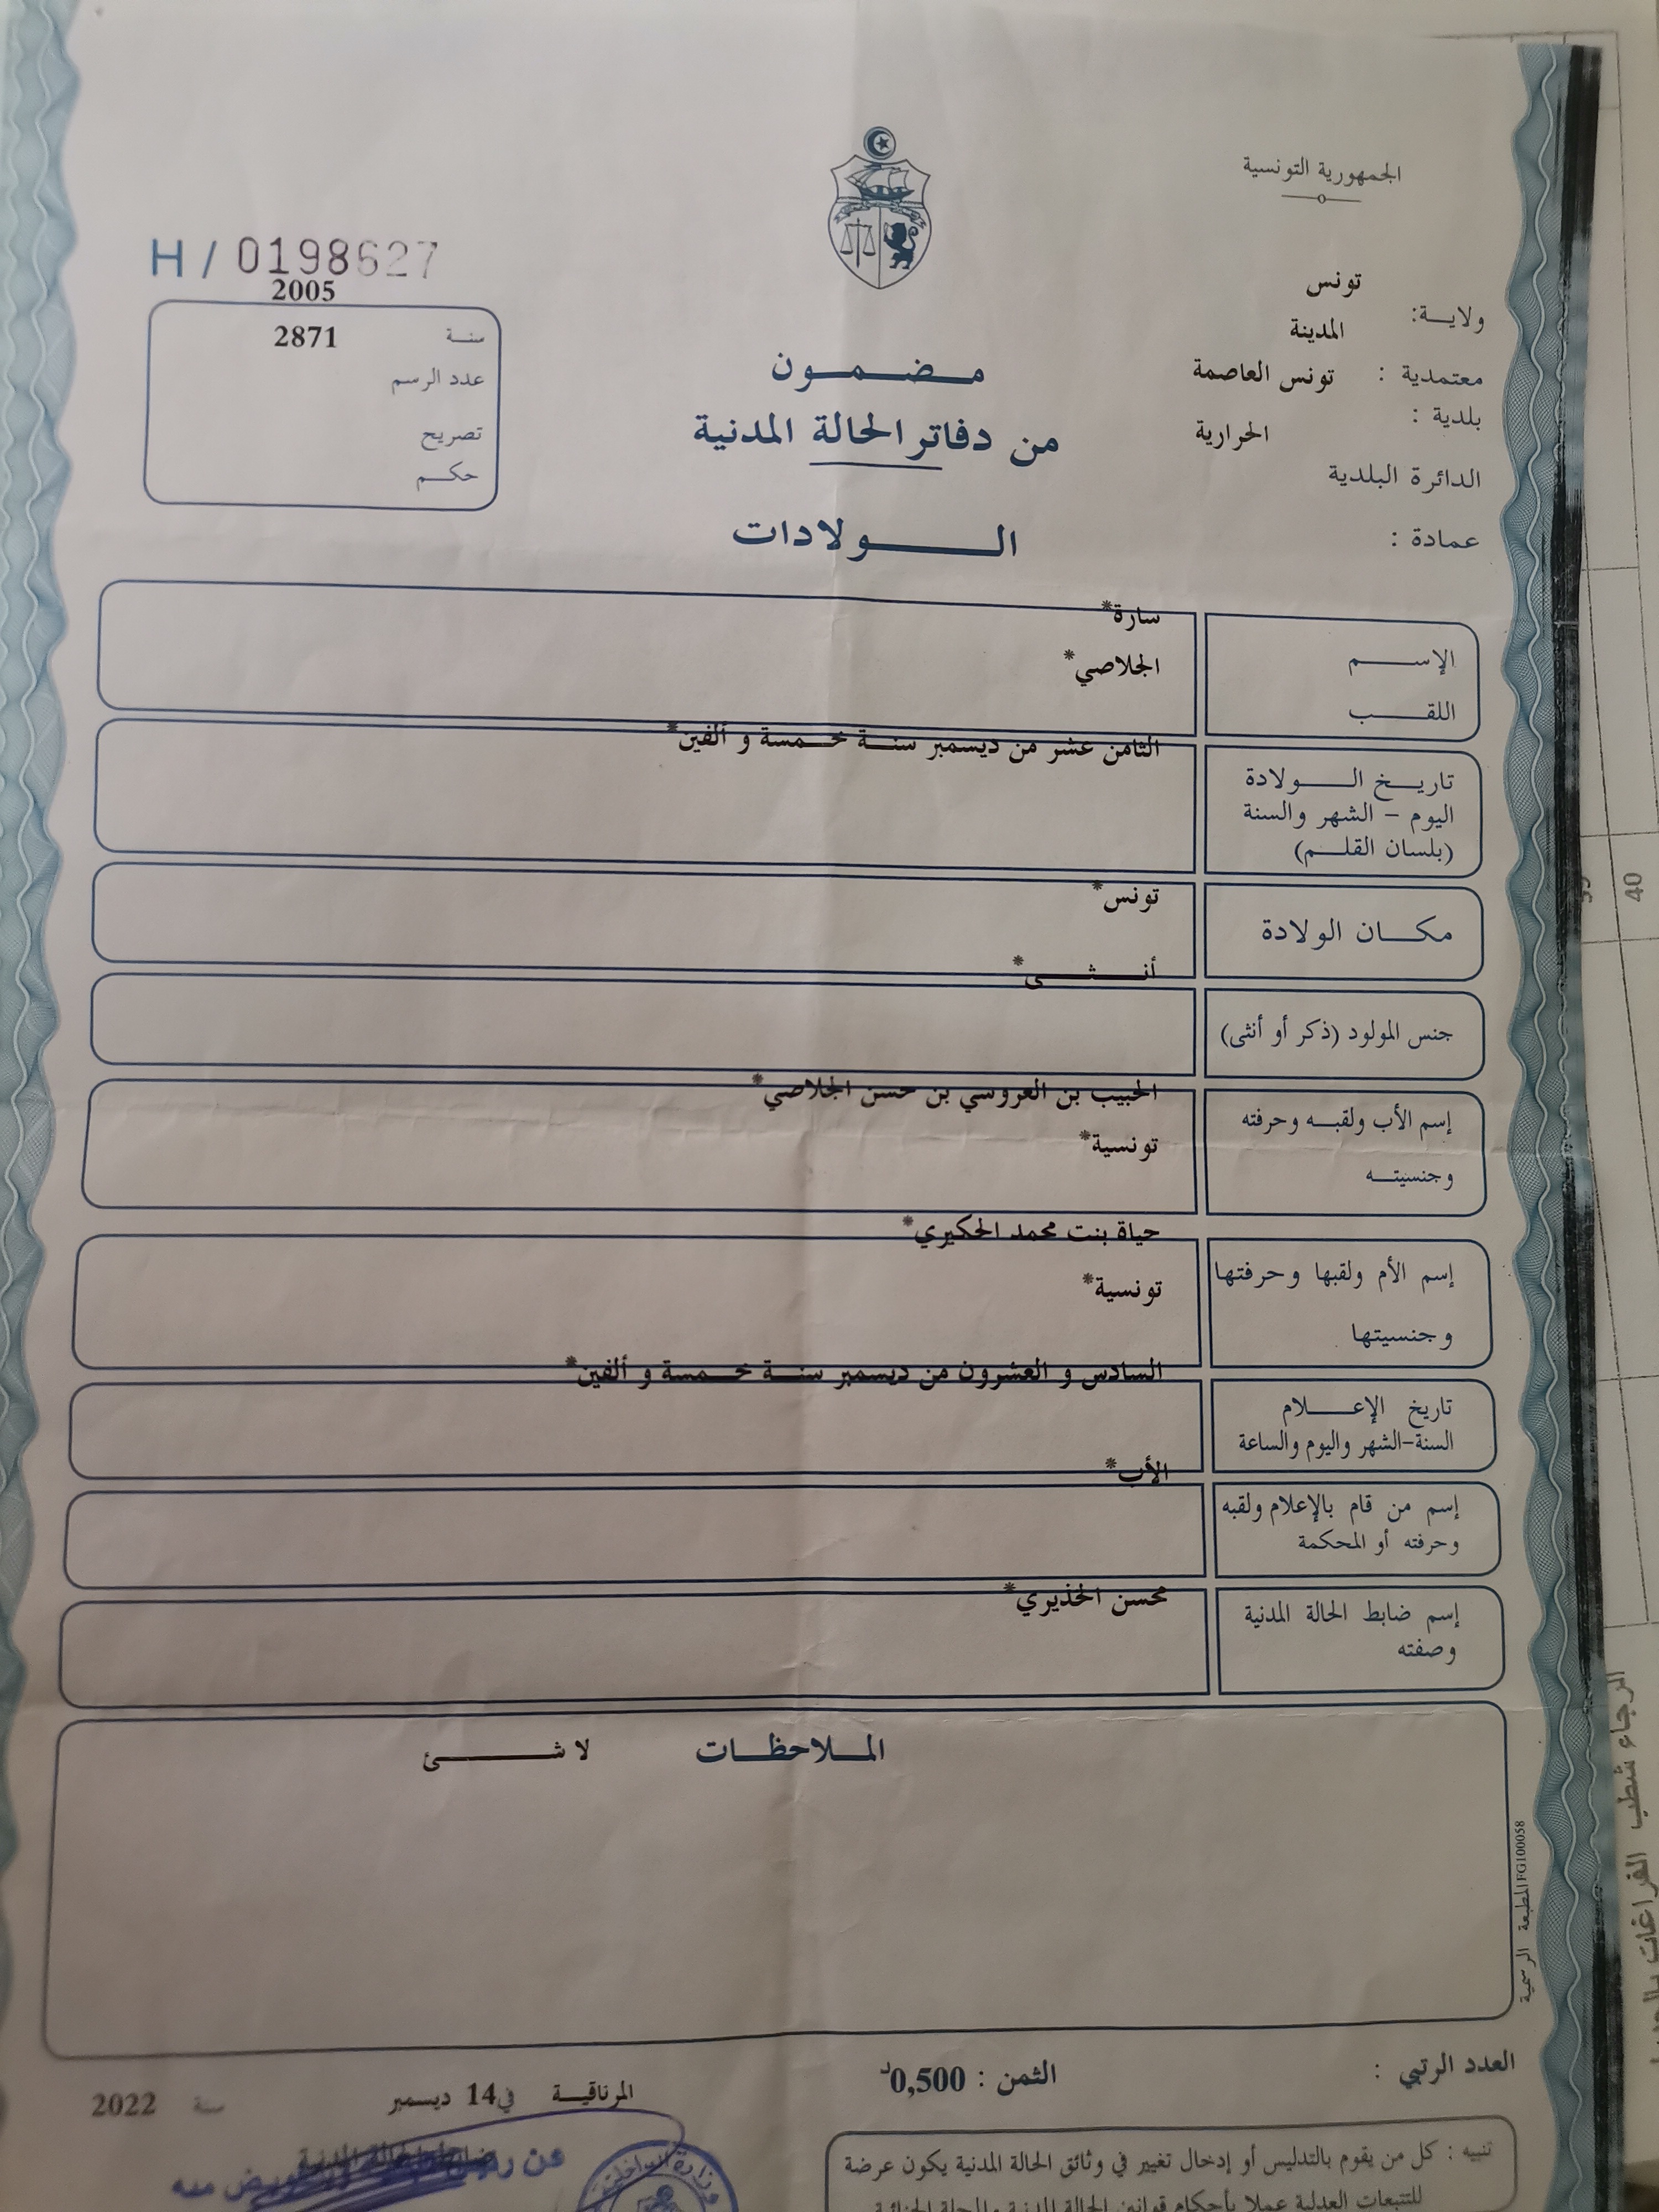 الجمهورية التونسية
H / 0198627
2005
سنة 2871
عدد الرسم
تصريح
حكم
تونس
ولاية:
المدينة
معتمدية : تونس العاصمة
بلدية :
الحرارية
الدائرة البلدية
عمادة :
مضمون
من دفاتر الحالة المدنية
الولادات
سارة*
الإسم
الجلاصي*
اللقب
الثامن عشر من ديسمبر سنة خمسة و ألفين*
تاريخ الولادة
اليوم - الشهر والسنة
(بلسان القلم)
تونس*
مكان الولادة
أنثى*
جنس المولود (ذكر أو أنثى)
الحبيب بن العروسي بن حسن الجلاصي*
إسم الأب ولقبه وحرفته
تونسية*
وجنسيته
حياة بنت محمد الحكيري*
إسم الأم ولقبها وحرفتها
تونسية*
وجنسيتها
السادس و العشرون من ديسمبر سنة خمسة و ألفين*
تاريخ الإعلام
السنة-الشهر واليوم والساعة
الأب*
إسم من قام بالإعلام ولقبه
وحرفته أو المحكمة
محسن الخذيري*
إسم ضابط الحالة المدنية
وصفته
الملاحظات لا شئ
المطبعة الرسمية FG100058
العدد الرتبي :
الثمن : 0,500د
المرناقية في 14 ديسمبر سنة 2022
ضابط الحالة المدنية
عن
وزارة الداخلية
تنبيه : كل من يقوم بالتدليس أو إدخال تغيير في وثائق الحالة المدنية يكون عرضة
للتتبعات العدلية عملا بأحكام قوانين الحالة المدنية والمجلة الجزائية
40
الرجاء شطب الفراغات